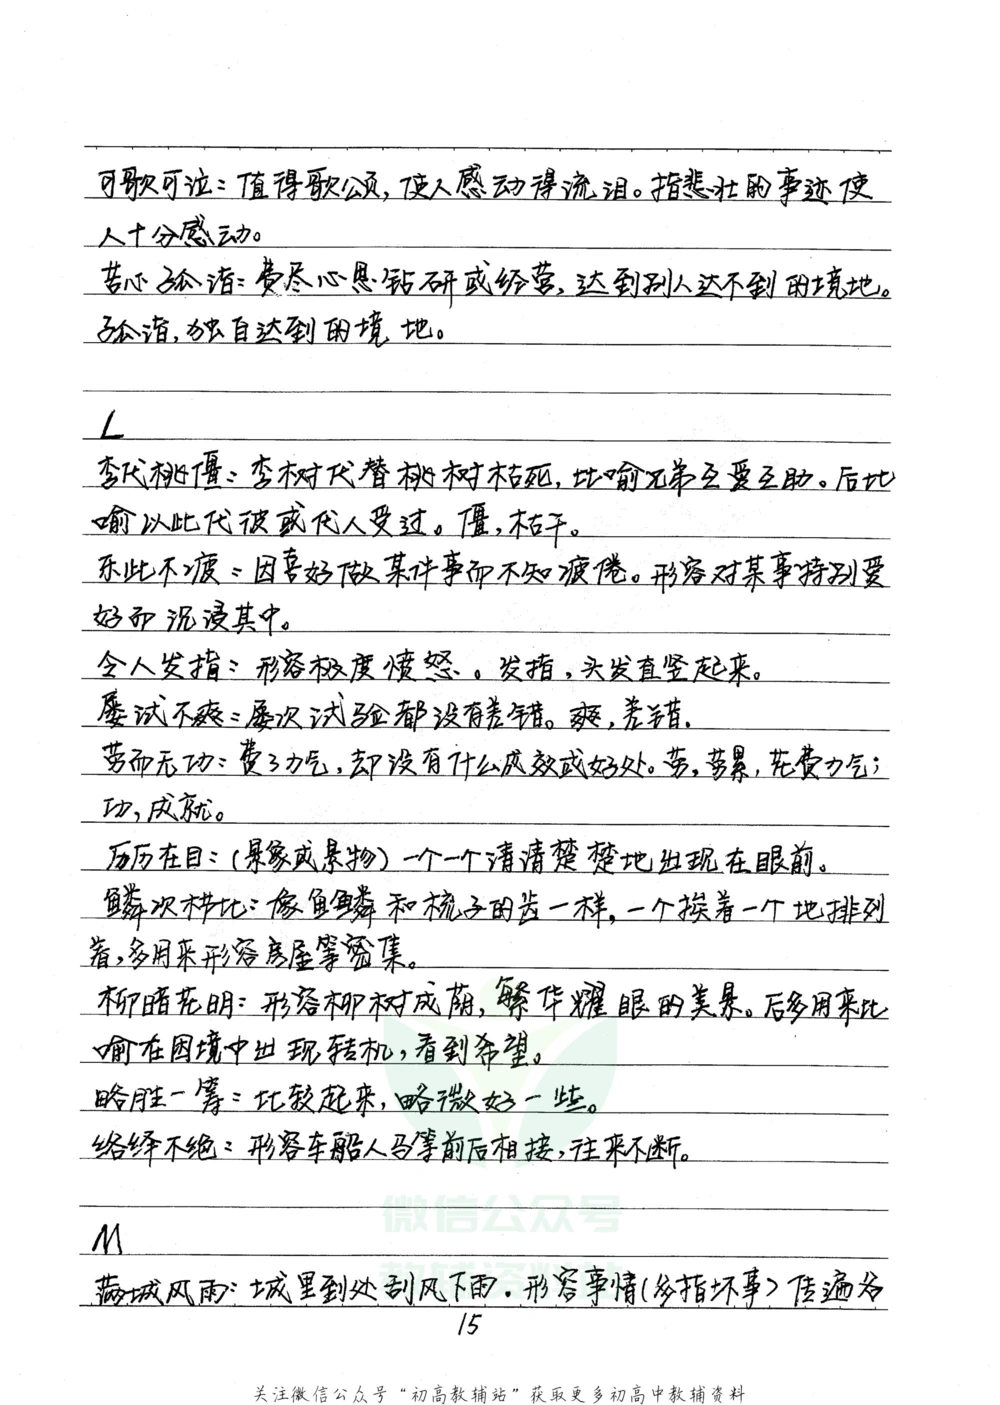 可歌可泣：值得歌颂，使人感动得流泪。指悲壮的事迹使
人十分感动。
苦心孤诣：费尽心思钻研或经营，达到别人达不到的境地。
孤诣，独自达到的境地。
L
李代桃僵：李树代替桃树枯死，比喻兄弟互爱互助。后比
喻以此代彼或代人受过。僵，枯干。
乐此不疲：因喜好做某件事而不知疲倦。形容对某事特别爱
好而沉浸其中。
令人发指：形容极度愤怒。发指，头发直竖起来。
屡试不爽：屡次试验都没有差错。爽，差错.
劳而无功：费了力气，却没有什么成效或好处。劳，劳累，花费力气；
功，成就。
历历在目：（景象或景物）一个一个清清楚楚地出现在眼前。
鳞次栉比：像鱼鳞和梳子的齿一样，一个挨着一个地排列
着，多用来形容房屋等密集。
柳暗花明：形容柳树成荫，繁华耀眼的美景。后多用来比
喻在困境中出现转机，看到希望。
略胜一筹：比较起来，略微好一些。
络绎不绝：形容车船人马等前后相接，往来不断。
M
满城风雨：城里到处刮风下雨．形容事情（多指坏事）传遍各
15
微信公众号
教辅资料站
关注微信公众号“初高教辅站”获取更多初高中教辅资料